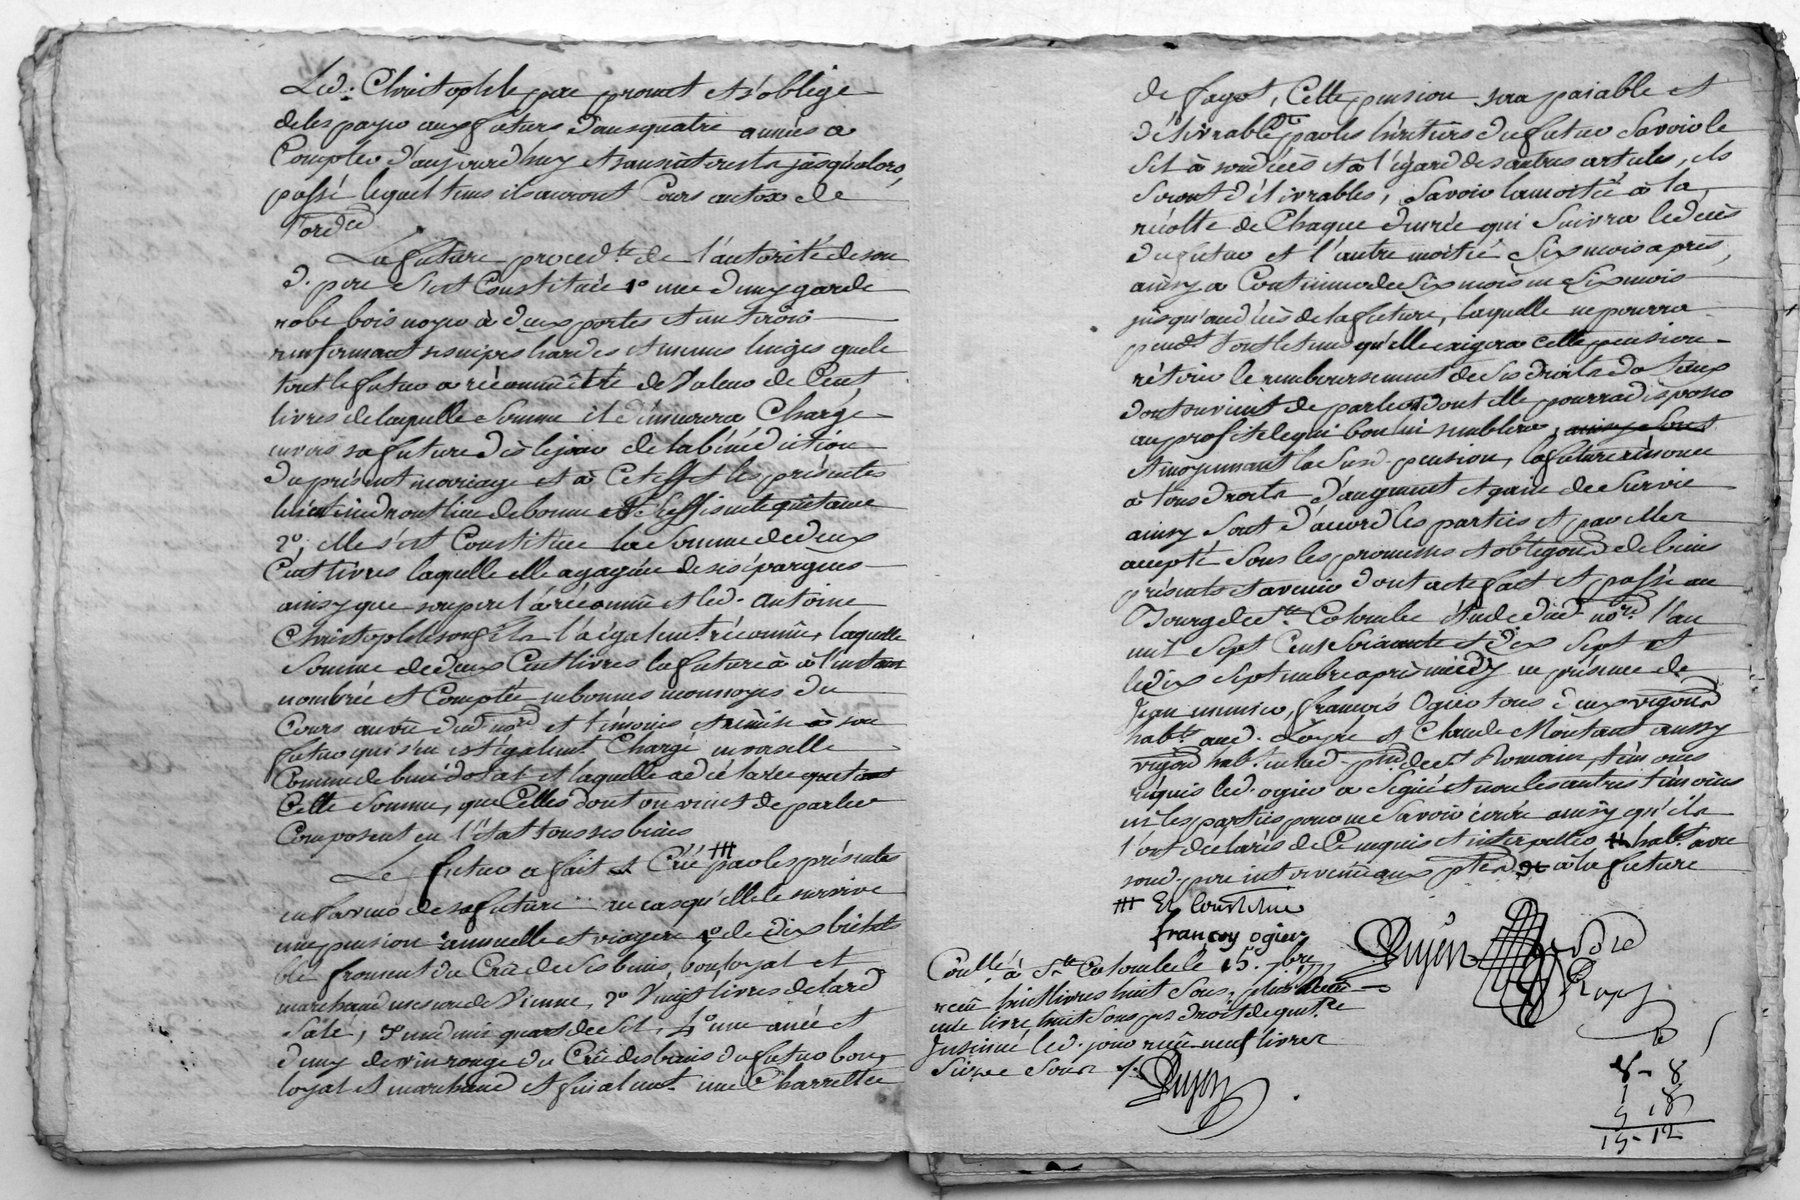 Led. Christophle pere promet et s'oblige
de les payer aux futurs dans quatre années a
Compter d'aujourd'huy et sans interets jusqu'alors,
passé lequel tems ils auront Cours au tax de
l'ord.ce
La future proced.te de l'autorité de son
d. pere s'est Constituée 1° une demy garde
robe bois noyer à deux portes et un tiroir
renfermant ses nipes hardes et menus linges que le
tout le futur a réconnu être de Valeur de Cent
livres de laquelle Somme il démeurera Chargé
envers sa future dès le jour de la bénédiction
du présent mariage et à Cet effet les présentes
lui tiendront lieu de bonne et suffisante quitance
2° elle s'est Constituée la Somme de deux
Cent livres laquelle elle a gagnée de ses épargnes
ainsy que son pere l'a réconnu et led. antoine
Christophle son fils l'a égalem.t réconnu, laquelle
Somme de deux Cent livres la future a à l'instant
nombrée et Comptée en bonnes monnoyes du
Cours au vû dud. no.re et témoins et rémise à son
futur qui s'en est égalem.t Chargé envers elle
Comme de bien dotal et laquelle a déclaré que tant
Cette Somme, que Celles dont on vient de parler
Composent en l'état tous ses biens
Le futur a fait et Créé ## par les présentes
en faveur de sa future au cas qu'elle le survive
une pension annuelle et viagere 1° de dix bichets
blé froment du Crû de ses biens, bon loyal et
marchand mesure de Vienne, 2° Vingt livres de lard
Salé, 3° un demi quart de Sel, 4° une anée et
demy de vin rouge du Crû des biens du futur bon,
loyal et marchand et finalem.t une Charretée
de fagot, Cette pension sera paiable et
délivrable par les héritiers du futur Savoir le
Sel à son décès et à l'égard des autres articles, ils
Seront délivrables, Savoir la moitié à la
récolte de Chaque denrée qui Suivra le décès
du futur et l'autre moitié Six mois après,
ainsy a Continuer de Six mois en Six mois
jusqu'au décès de la future, laquelle ne pourra
pend.t tout le tems qu'elle exigera cette pension
rétirer le remboursement de Ses droits dotaux
dont on vient de parler et dont elle pourra disposer
au profit de qui bon lui semblera, ainsy Sont
et moyennant la Susd. pension, la future rénonce
à tous droits d'augment et gain de Survie
ainsy Sont d'accord les parties et par elles
accepté Sous les promesses et obligaôns de biens
présents et avenir dont acte fait et passé au
Bourg de S.te Colombe étude dud. no.re l'an
mil Sept Cent Soixante et dix Sept et
le dix Septembre après midy en présence de
Jean françois Ogier tous deux vignerons
hab.ts aud. Loyre et Claude Montant aussy
vigneron hab.t en lad. p.sse de S.t Romain, témoins
réquis led. ogier a Signé et non les autres témoins
ni les parties pour ne Savoir écrire ainsy qu'ils
l'ont déclarés de Ce enquis et interpellés hab.t avec
sond. pere intervenu aux p.ntes à la future
## Et Constitue
françoy ogier
Dugen
Controllé à S.te Colombe le 15. 7bre
recû huit livres huit Sous, plus recû
une livre huit Sous p.r droit de quit.ce
Insinué led. jour reçu neuf livres
Seize Sous
Dugen
8 - 8
1 8
15 - 12